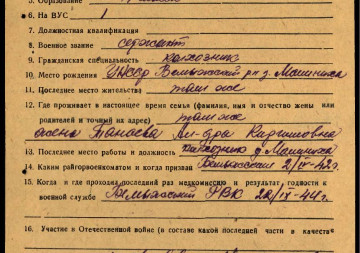 5. Образование
6. На ВУС 1
7. Должностная квалификация
8. Военное звание сержант
9. Гражданская специальность колхозник
10. Место рождения р-н д. Машниха
11. Последнее место жительства там же
12. Где проживает в настоящее время семья (фамилия, имя и отчество жены или
родителей и точный их адрес) там же
жена Панаева
13. Последнее место работы и должность колхозник д. Машниха
14. Каким райгорвоенкоматом и когда призван 2/IV-42г.
15. Когда и где проходил последний раз медкомиссию и результат годности к
военной службе РВК 22/IX-44г.
16. Участие в Отечественной войне (в составе какой последней части и качестве